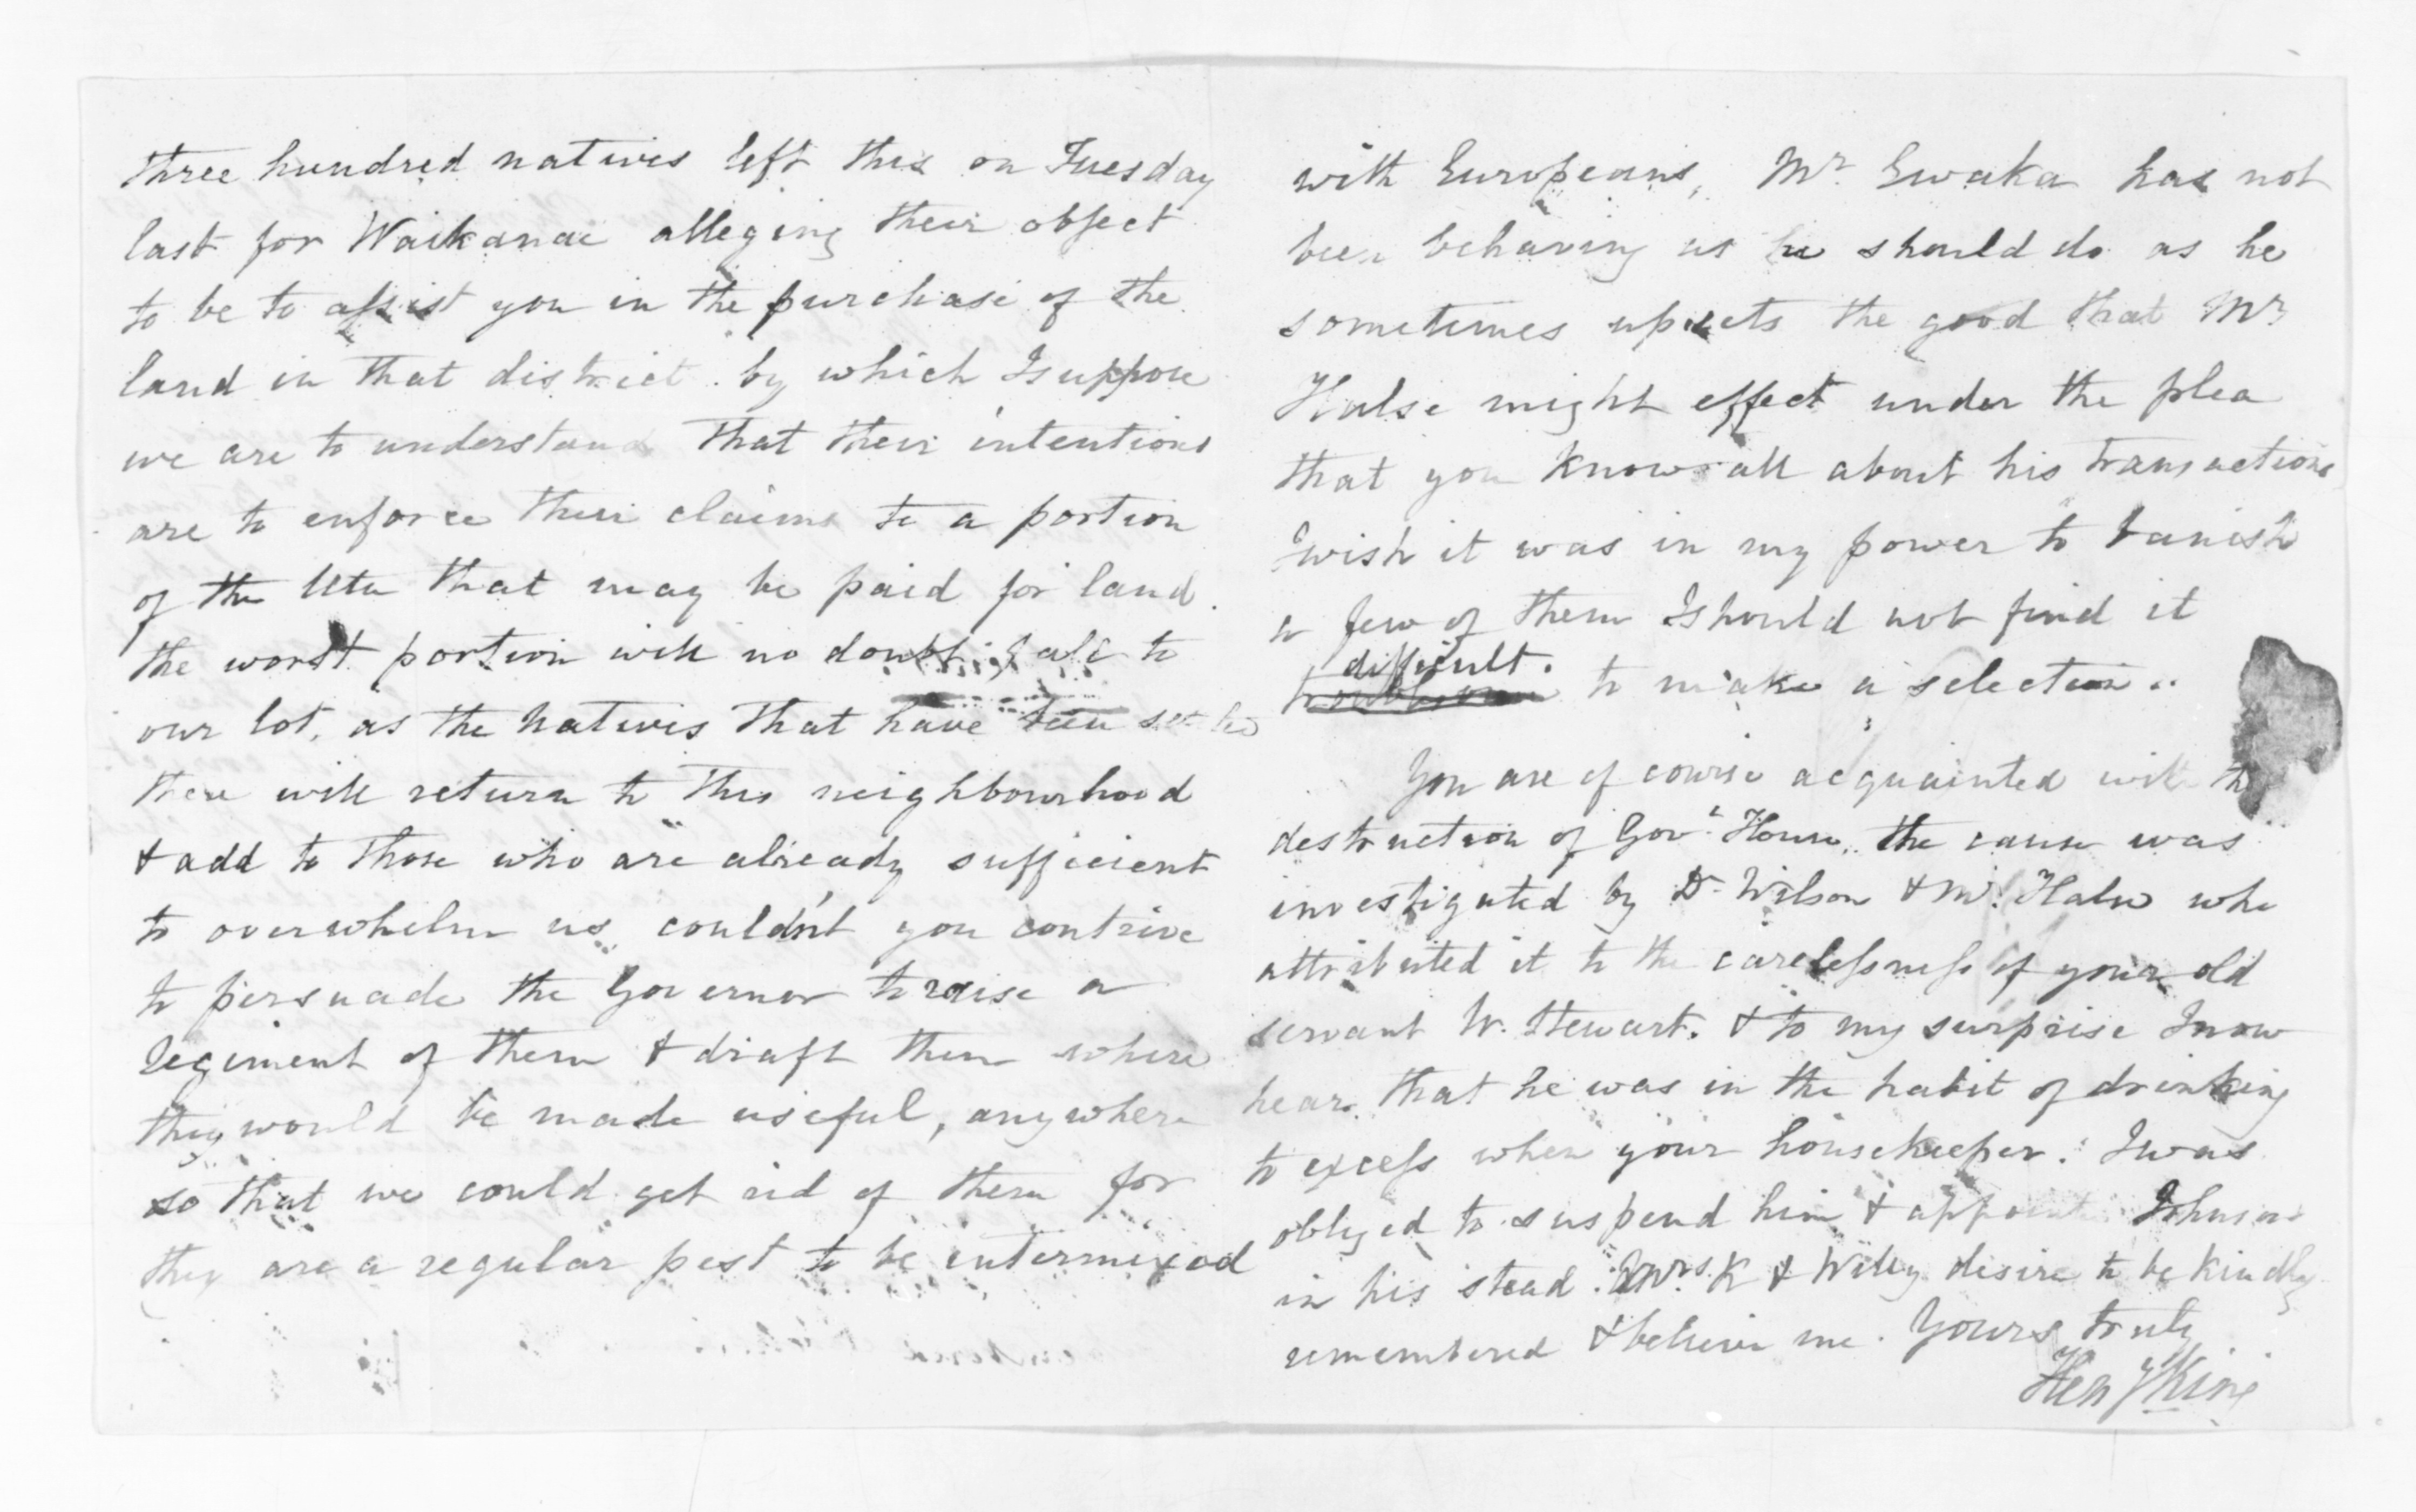 three hundred natives left this on Tuesday
last for Waikanae alleging their object
to be to assist you in the purchase of the
land in that district. by which I suppose
we are to understand that their intentions
are to enforce their claims to a portion
of the Utu that may be paid for land.
the worst portion will no doubt, fall to
our lot, as the natives that have been settled
there will return to this neighbourhood
& add to those who are already sufficient
to overwhelm us, couldn't you contrive
to persuade the Governor to raise a
regiment of them & draft them where
they would be made useful, anywhere
so that we could get rid of them for
they are a regular pest to be intermixed
with Europeans, Mr. Ewaka has not
been behaving as he should do as he
sometimes upsets the good that Mr
Halse might effect under the plea
that you know all about his transactions
I wish it was in my power to banish
a few of them I should not find it
difficult.
to make a selection..
You are of course acquainted with the
destruction of Govt. House, the cause was
investigated by Dr Wilson & Mr. Halse who
attributed it to the carelessness of your old
servant W. Stewart. & to my surprise I now
hear that he was in the habit of drinking
to excess when your housekeeper. I was
obliged to suspend him & appoint Johnson
in his stead. Mrs. K & Willy desire to be kindly
remembered & believe me. Yours truly
Heny King